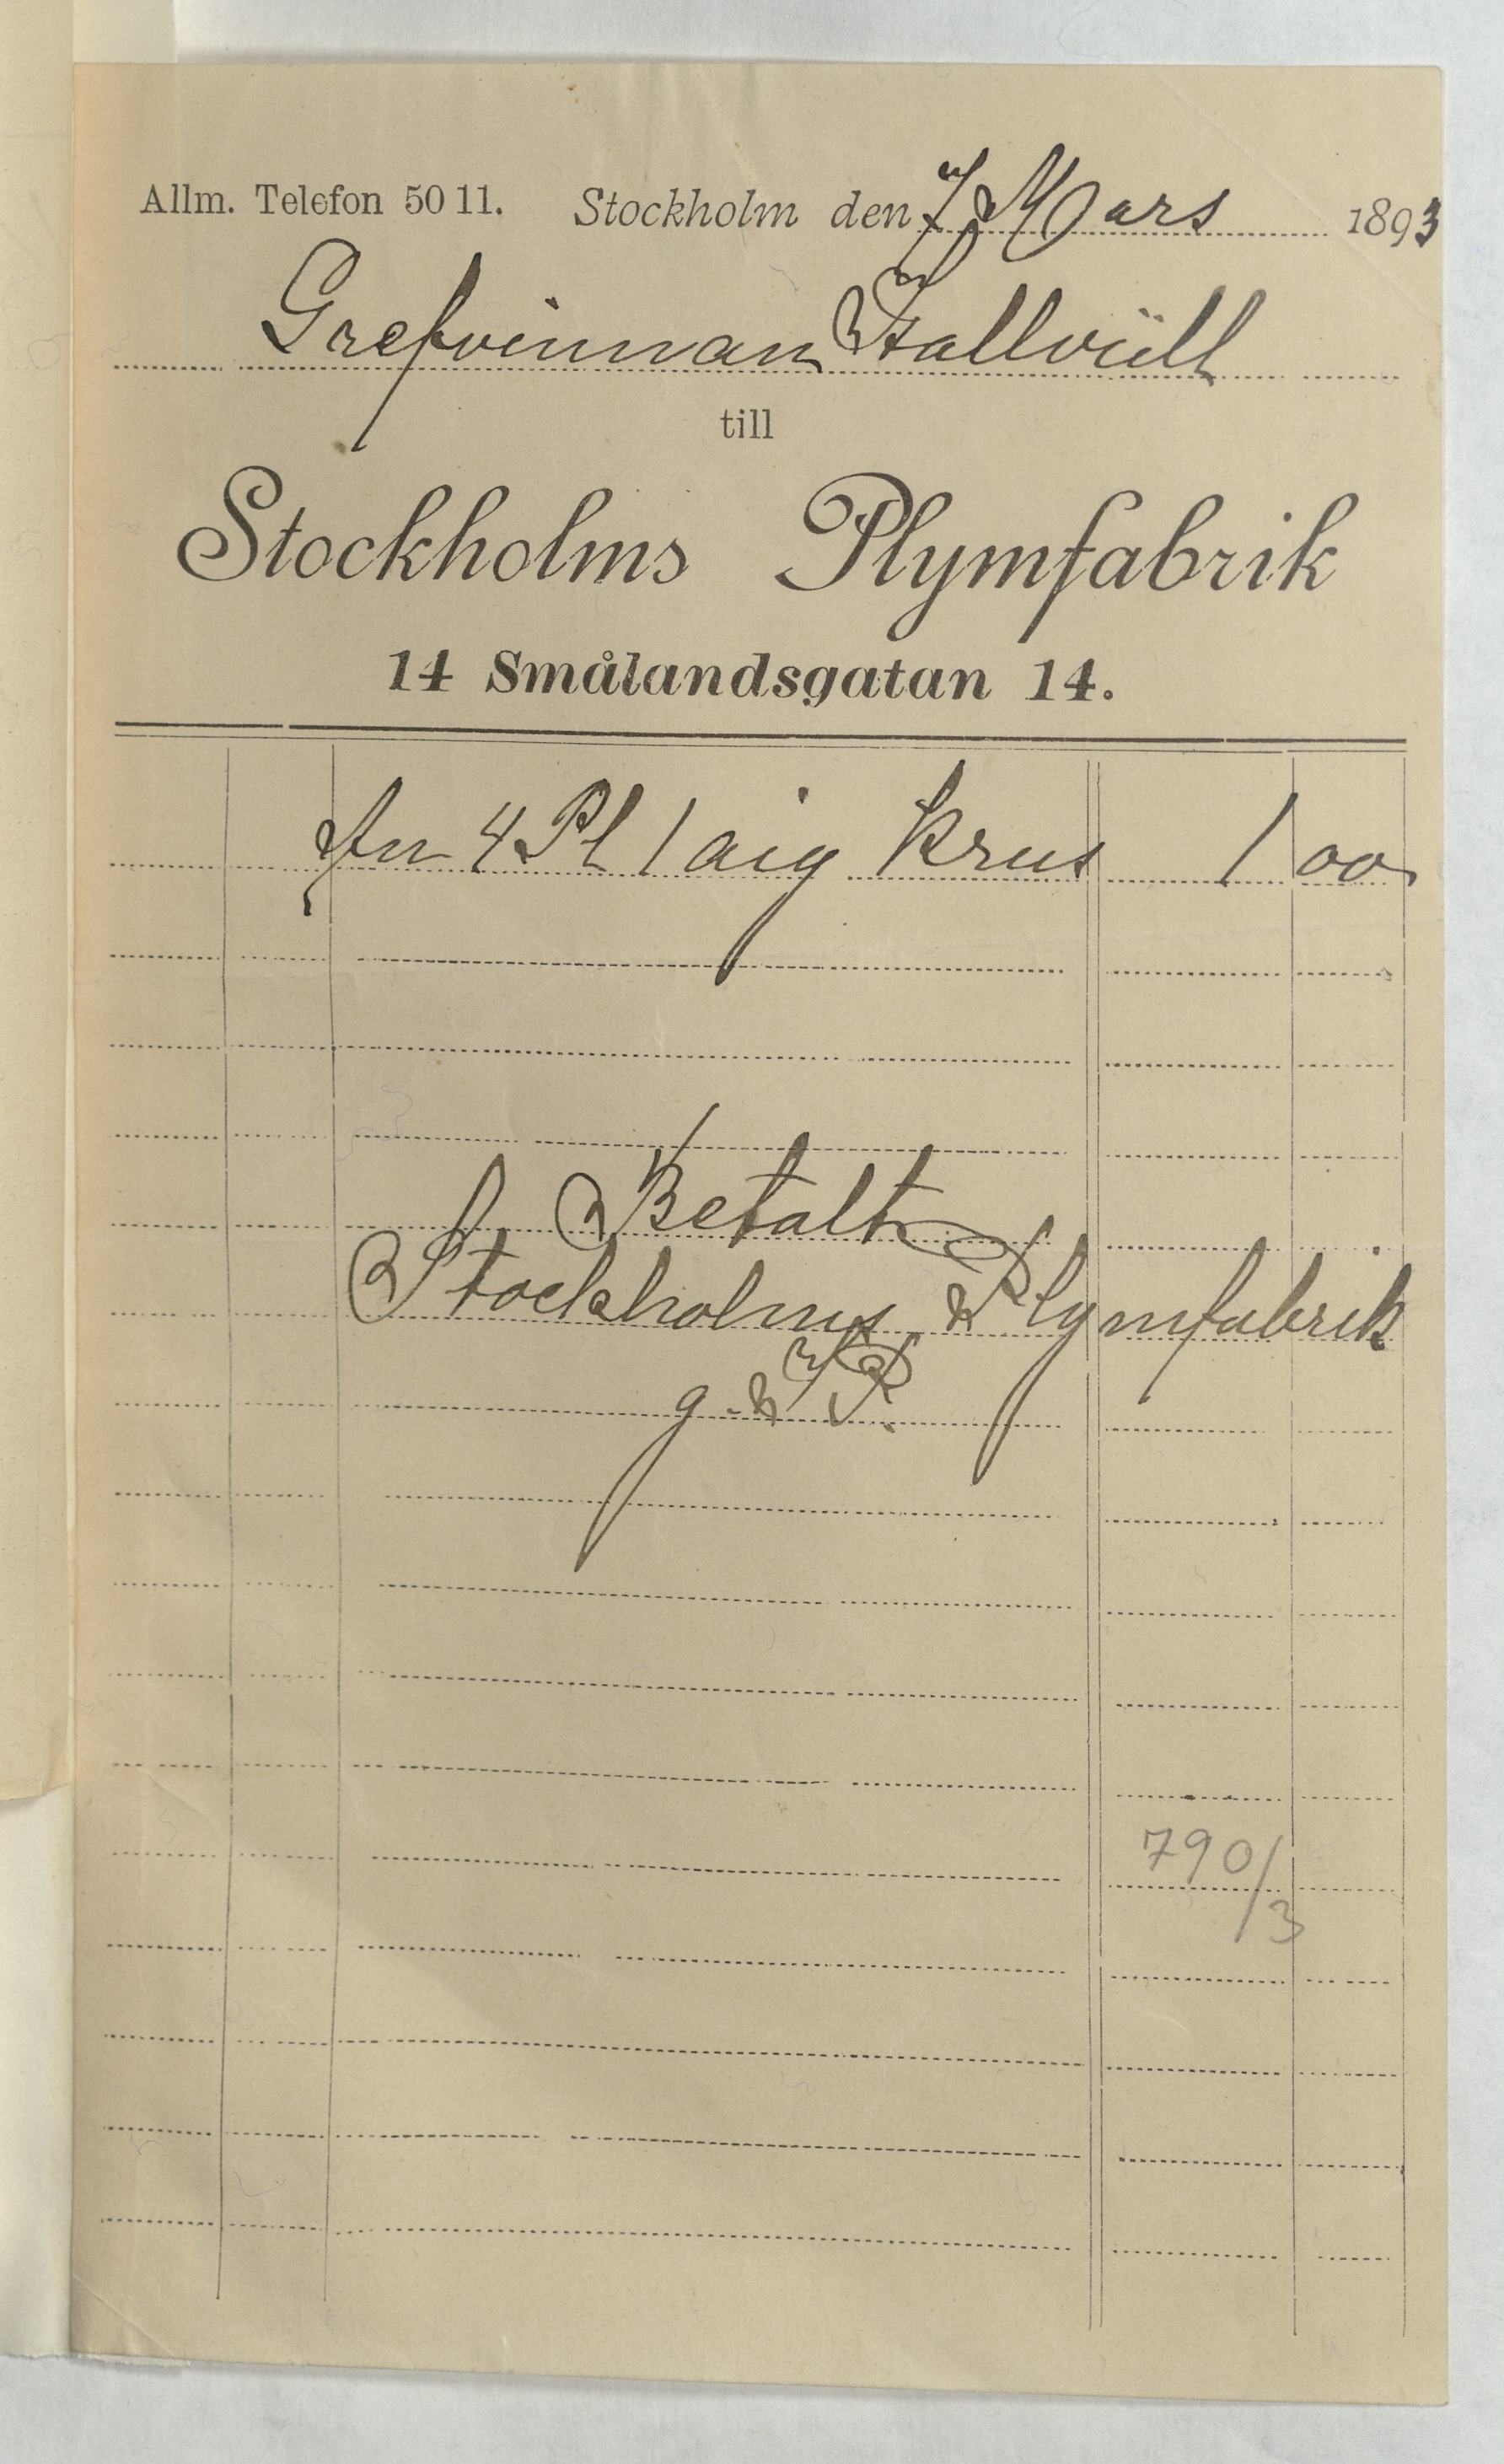 Allm. Telefon 50 11. Stockholm den 7 Mars 1893
Grefvinnan Hallvill
till
Stockholms Plymfabrik
14 Smålandsgatan 14.
4 Pl 1 aig Krus 1 00
Betalt
Stockholms Plymfabrik
790/3